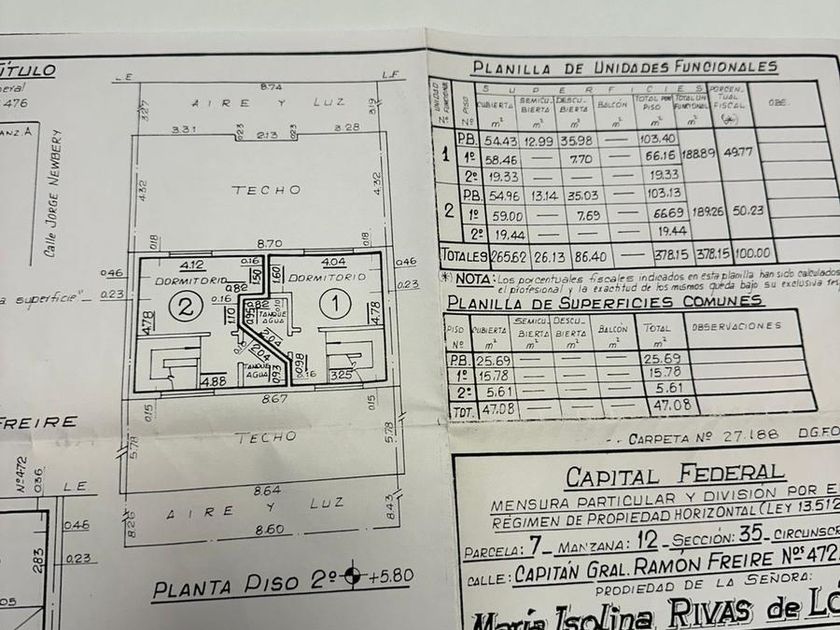 ÍTULO
eral
476
ANZ A
Calle JORGE NEWBERY
a superficie"
FREIRE
Nº472
0.36
L E
0.46
0.23
2.83
05
L E
L F
8.74
AIRE Y LUZ
3.27
3.19
3.31
0.23
2.13
0.23
3.28
4.32
TECHO
4.32
0.18
8.70
0.18
0.46
0.23
4.12
0.16
4.04
0.46
0.23
DORMITORIO
1.50
1.60
DORMITORIO
0.82
0.16
0.82
2
1
1.10
0.95
TANQUE AGUA
4.78
4.78
2.04
2.04
0.98
TANQUE AGUA
0.93
0.16
4.88
3.25
0.15
8.67
0.15
5.78
TECHO
5.78
8.64
AIRE Y LUZ
8.26
8.43
8.60
PLANTA PISO 2º +5.80
PLANILLA DE UNIDADES FUNCIONALES
UNIDAD FUNCIONAL Nº
PISO Nº
SUPERFICIES
CUBIERTA m²
SEMICUBIERTA m²
DESCUBIERTA m²
BALCÓN m²
TOTAL POR PISO m²
TOTAL UN. FUNCIONAL m²
PORCENTUAL FISCAL (*)
OBS.
1 P.B. 54.43 12.99 35.98 — 103.40
1º 58.46 — 7.70 — 66.16 188.89 49.77
2º 19.33 — — — 19.33
2 P.B. 54.96 13.14 35.03 — 103.13
1º 59.00 — 7.69 — 66.69 189.26 50.23
2º 19.44 — — — 19.44
TOTALES 265.62 26.13 86.40 — 378.15 378.15 100.00
(*) NOTA: Los porcentuales fiscales indicados en esta planilla han sido calculados
el profesional y la exactitud de los mismos queda bajo su exclusiva
PLANILLA DE SUPERFICIES COMUNES
PISO Nº
CUBIERTA m²
SEMICUBIERTA m²
DESCUBIERTA m²
BALCÓN m²
TOTAL m²
OBSERVACIONES
P.B. 25.69 — — — 25.69
1º 15.78 — — — 15.78
2º 5.61 — — — 5.61
TOT. 47.08 — — — 47.08
CARPETA Nº 27.188 D.G.F.O
CAPITAL FEDERAL
MENSURA PARTICULAR Y DIVISIÓN POR E
RÉGIMEN DE PROPIEDAD HORIZONTAL (LEY 13.512
PARCELA: 7 — MANZANA: 12 — SECCIÓN: 35 — CIRCUNSC
CALLE: CAPITÁN GRAL. RAMÓN FREIRE Nos 472
PROPIEDAD DE LA SEÑORA:
María Isolina RIVAS de LÓ